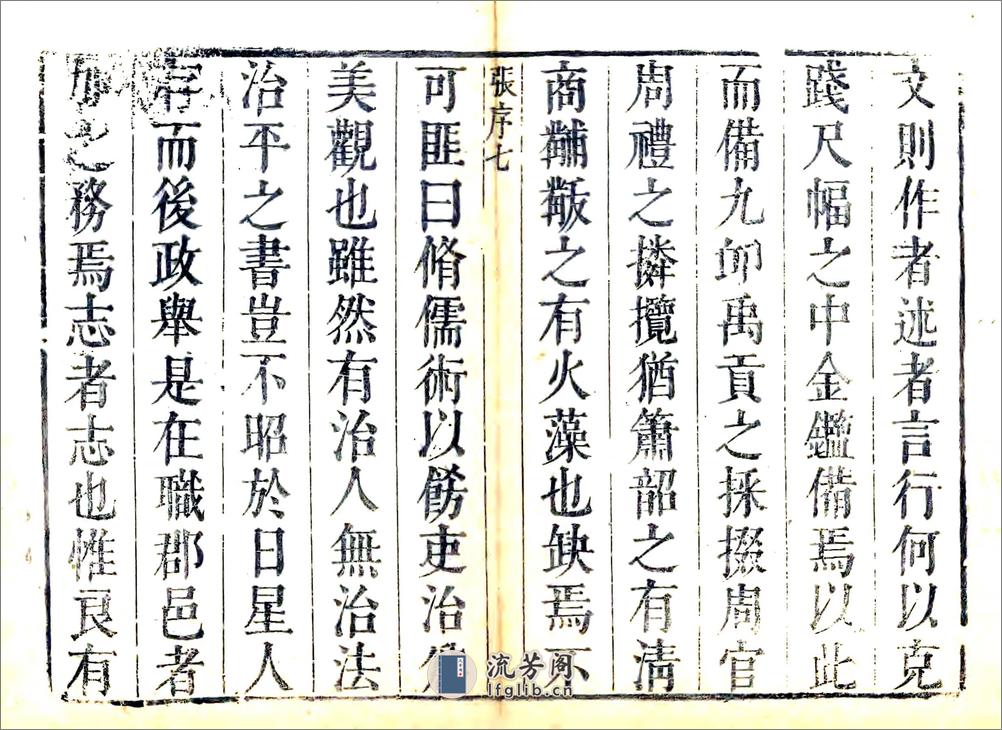 文則作者述者言行何以克
踐尺幅之中金鑑備焉以此
而備九禹貢之採掇周官
周禮之撛攬猶簫韶之有淸
商黼黻之有火藻也缺焉不
張序七
可匪曰脩儒術以餝吏治
美觀也雖然有治人無治法
治平之書豈不昭於日星人
存而後政舉是在職郡邑者
之務焉志者志也惟良有
流芳阁
lfglib.cn